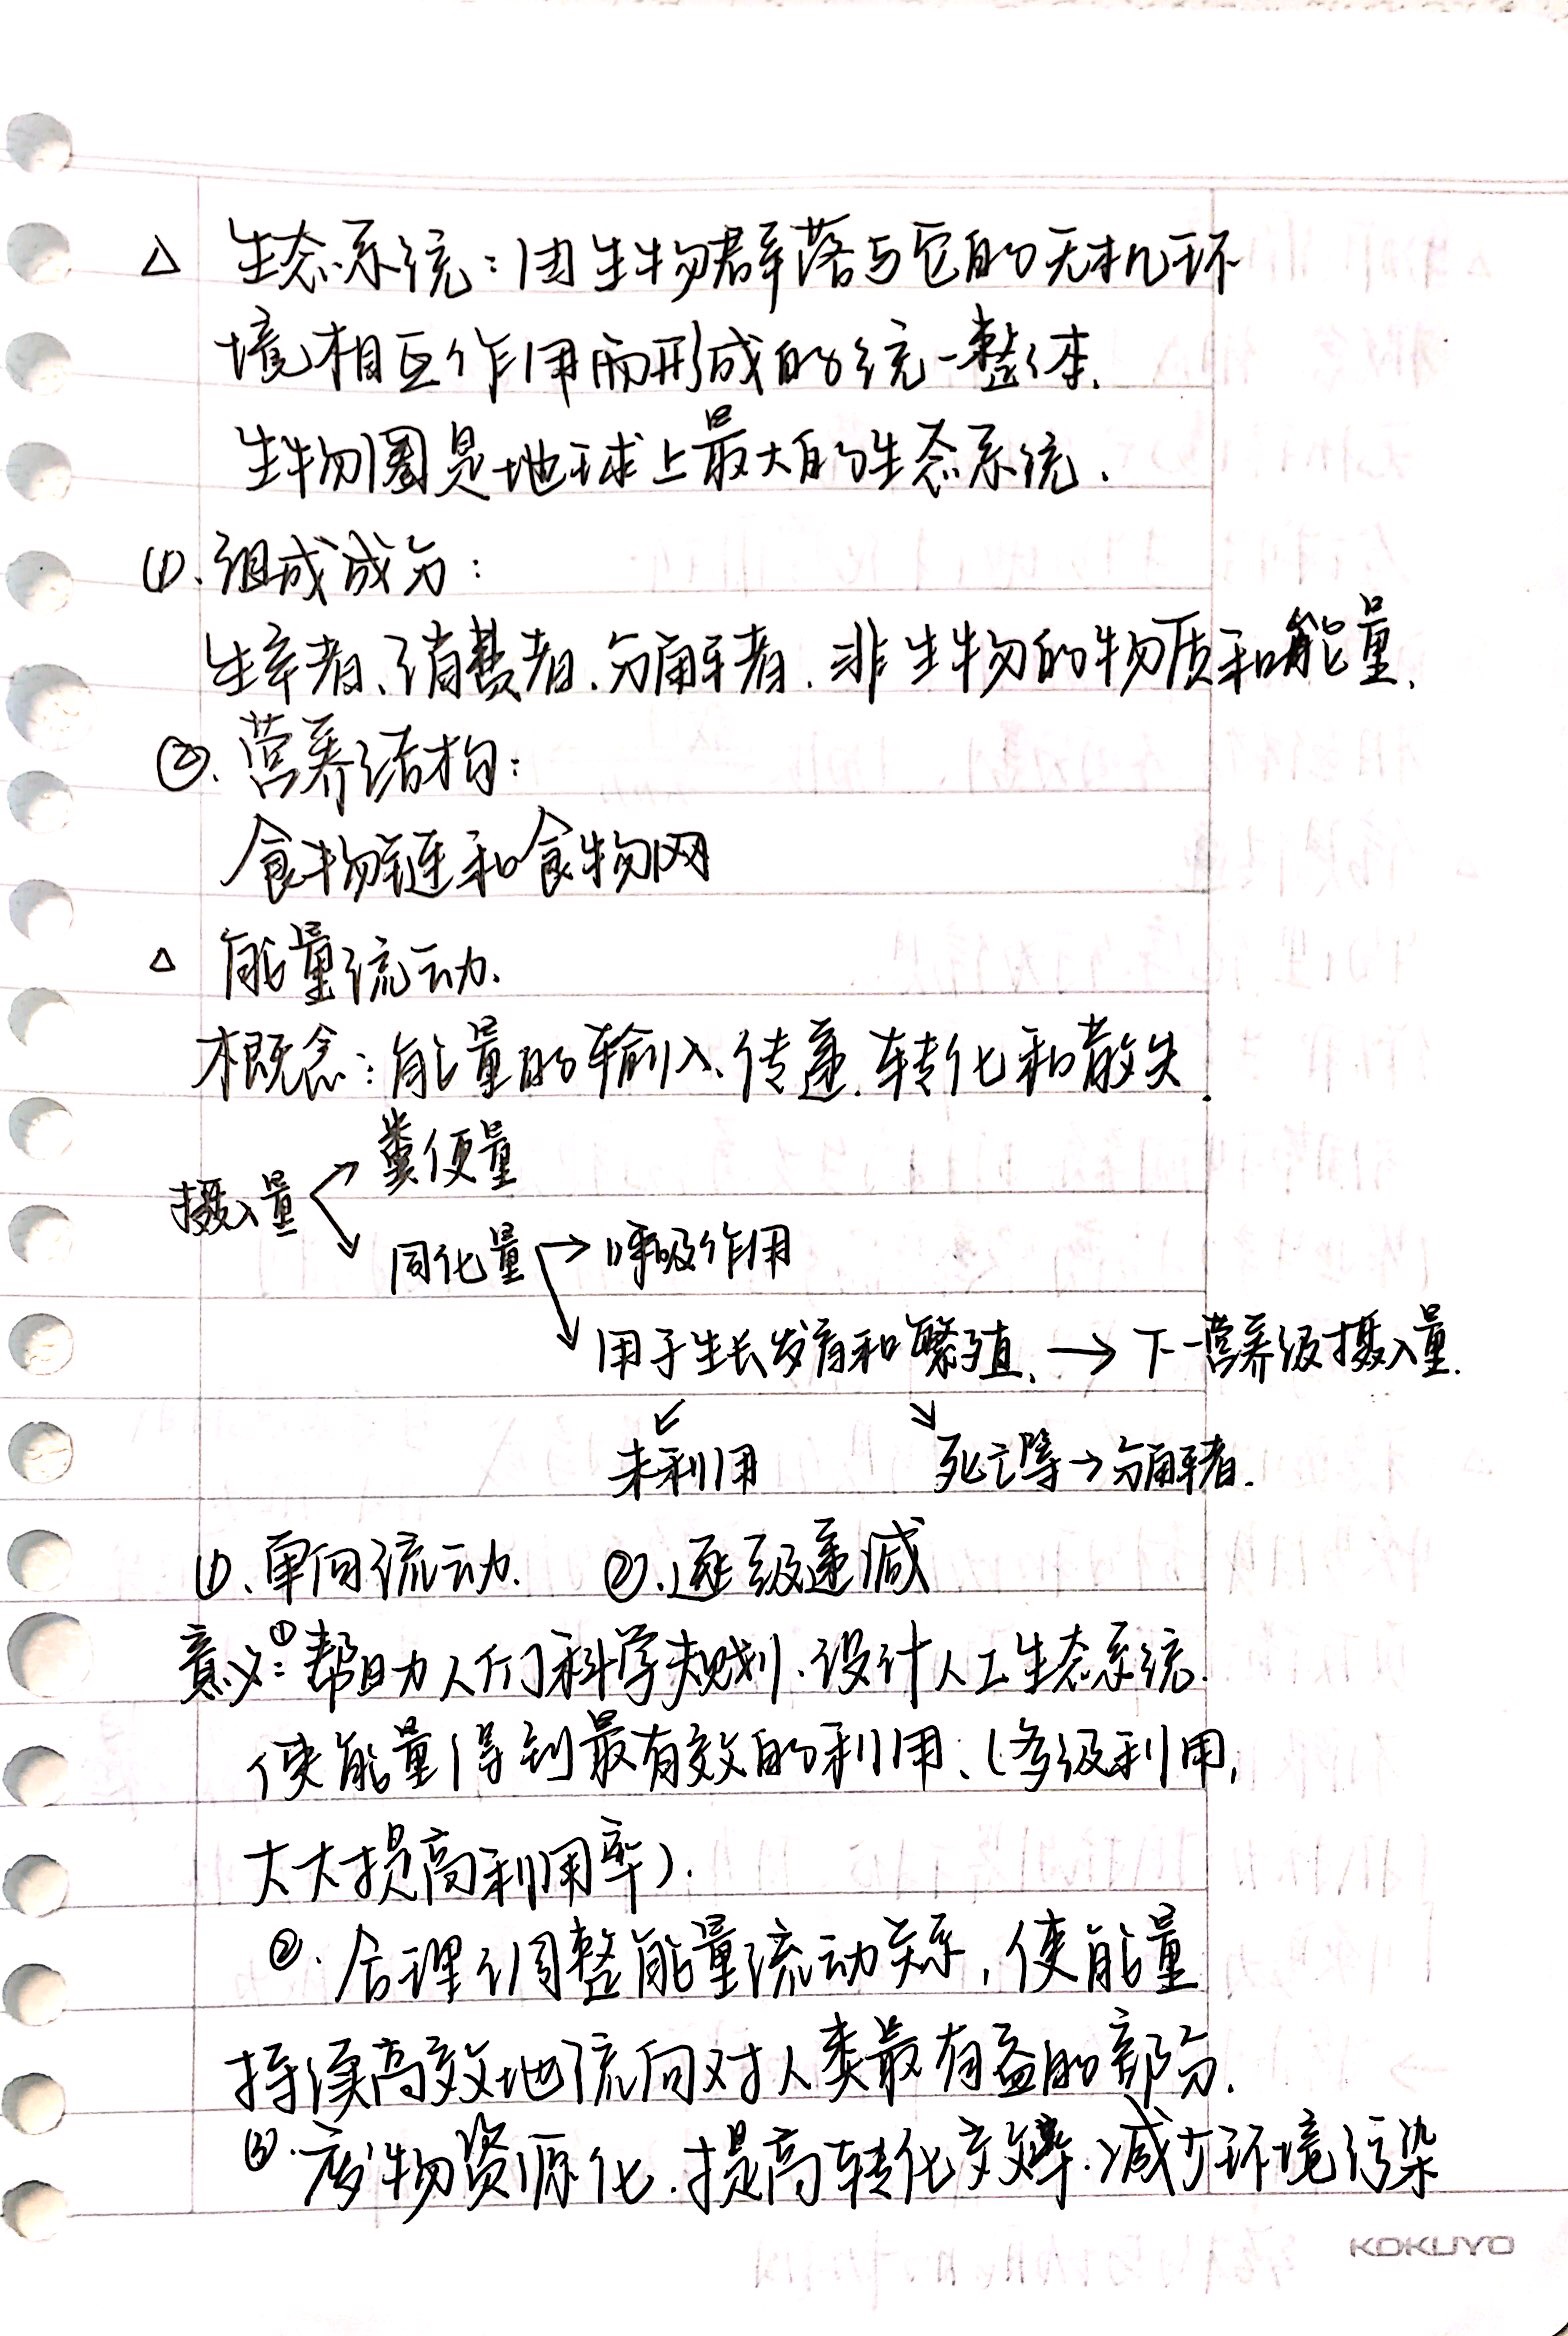 △ 生态系统：由生物群落与它的无机环
境相互作用而形成的统一整体.
生物圈是地球上最大的生态系统.
①、组成成分：
生产者、消费者、分解者、非生物的物质和能量.
②、营养结构：
食物链和食物网
△ 能量流动.
概念：能量的输入、传递、转化和散失.
粪便量
摄入量
同化量 → 呼吸作用
用于生长发育和繁殖. → 下一营养级摄入量.
未利用 死亡等→分解者.
①、单向流动. ②、逐级递减
意义：①帮助人们科学规划、设计人工生态系统.
使能量得到最有效的利用、(多级利用,
大大提高利用率).
②. 合理调整能量流动关系, 使能量
持续高效地流向对人类最有益的部分.
③. 废物资源化. 提高转化效率. 减少环境污染
KOKUYO